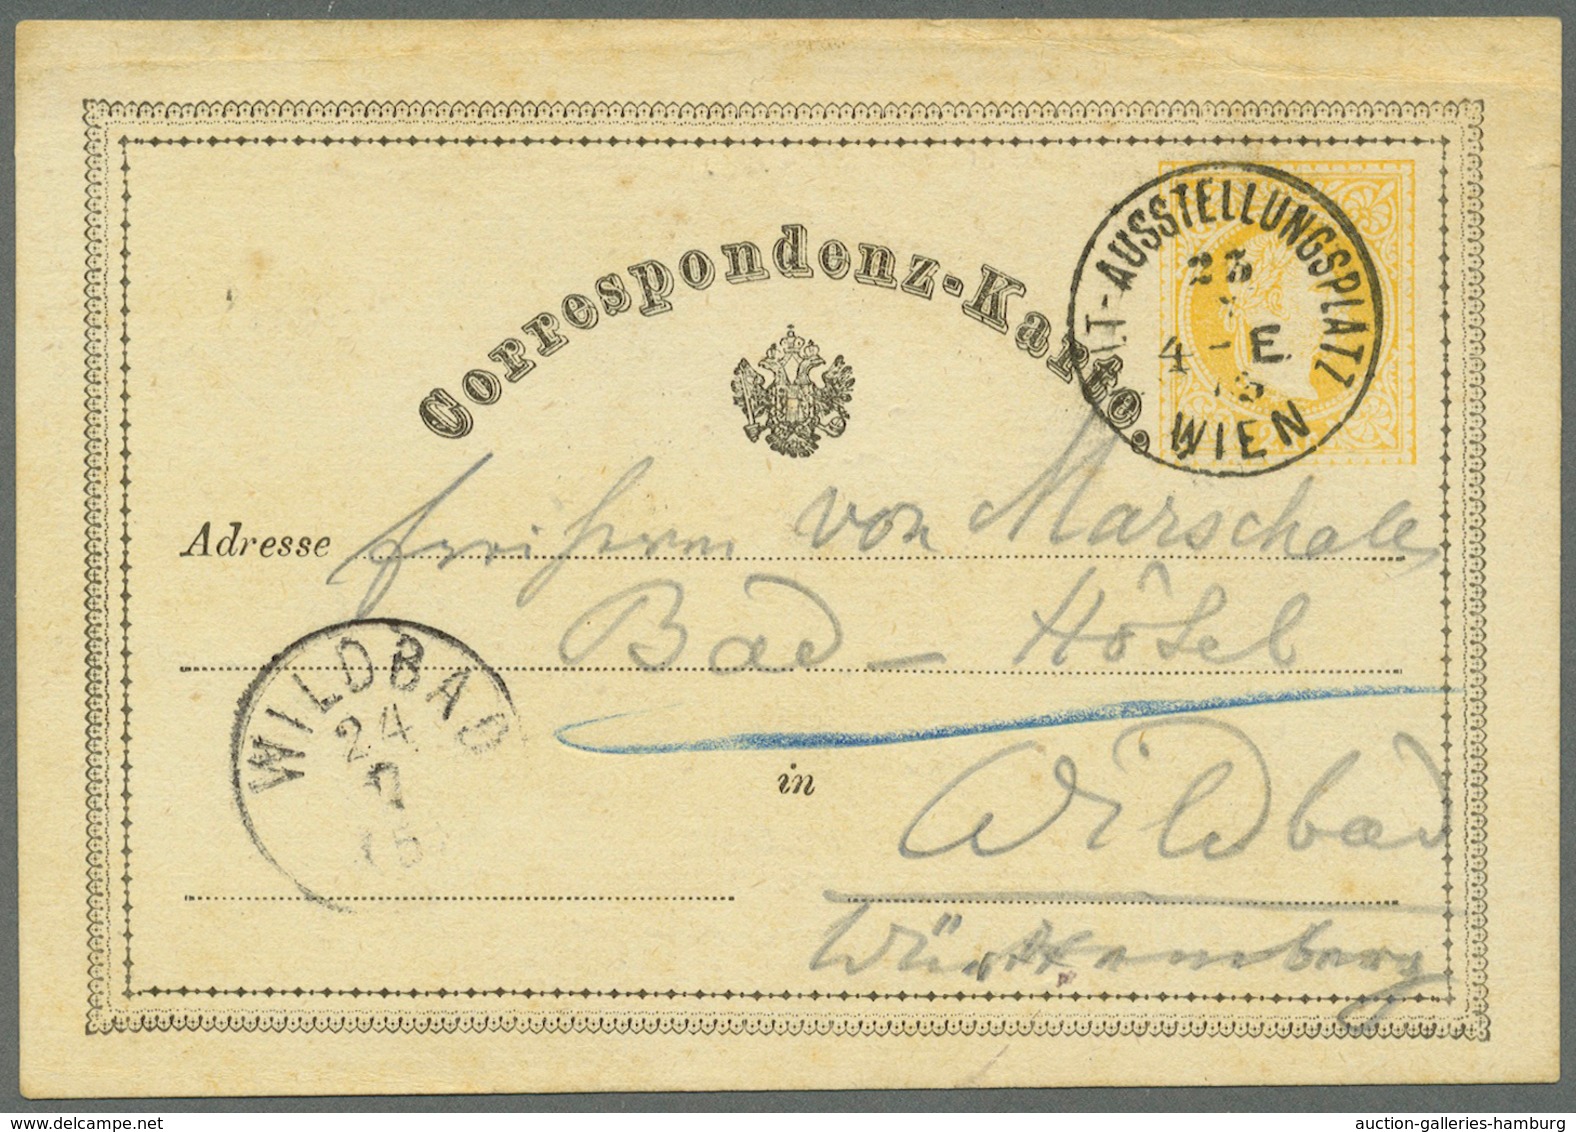 Correspondenz-Karte.
LT-AUSSTELLUNGSPLATZ
4 - E
WIEN
Adresse Freiherrn von Marschall
Bad - Hôtel
WILDBAD
24
7
in Wildbad
Württemberg
www.delcampe.net
auction-galleries-hamburg